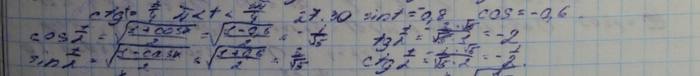 ctgt = 3/4 π<t<3π/2 27.30 sint = -0,8 cos = -0,6
cos t/2 = √(1+cosα)/2 = √(1-0,6)/2 = -1/√5 tg t/2 = = -2
sin t/2 = √(1-cosα)/2 = √(1+0,6)/2 = 2/√5 ctg t/2 = = -1/2